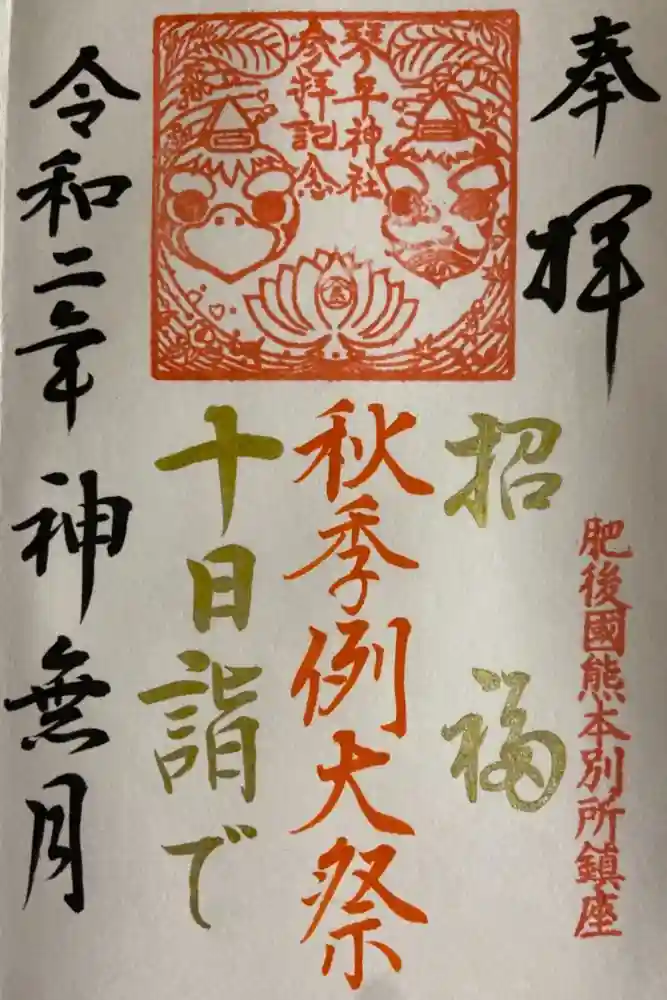 奉拝
肥後國熊本別所鎮座
琴平神社
参拝記念
招福
秋季例大祭
十日詣で
令和二年 神無月